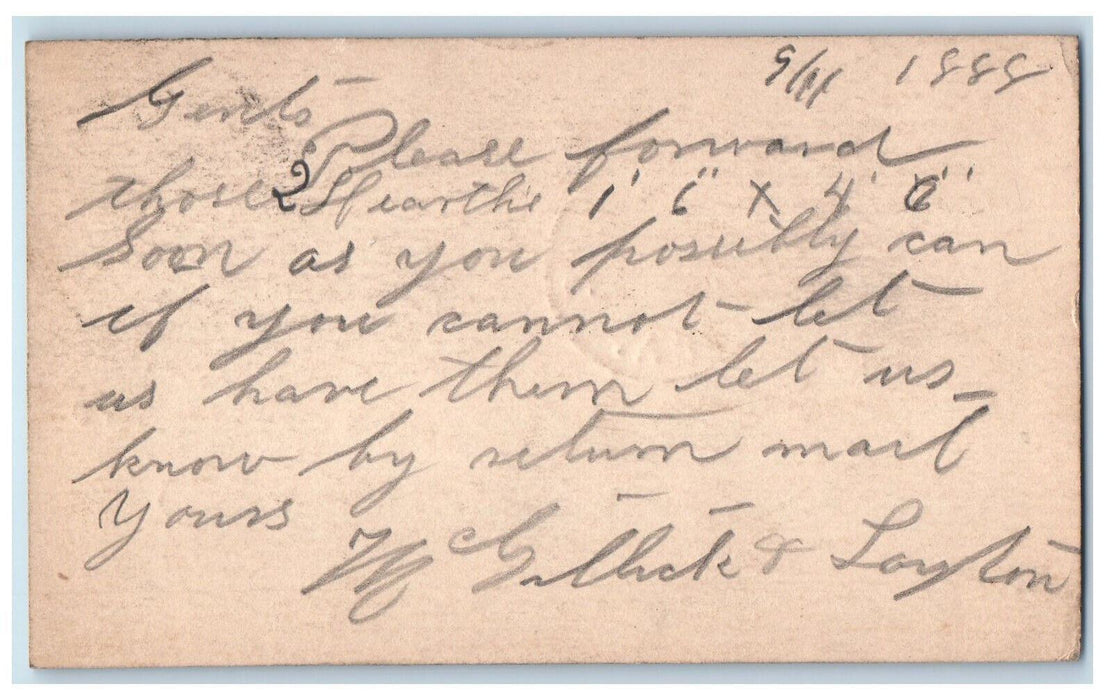 9/11 1888
Gents
Please forward
those 2 Hearths 1' 6" x 4' 6"
Soon as you possibly can
if you cannot let
us have them let us
know by return mail
Yours
McGillick & Layton